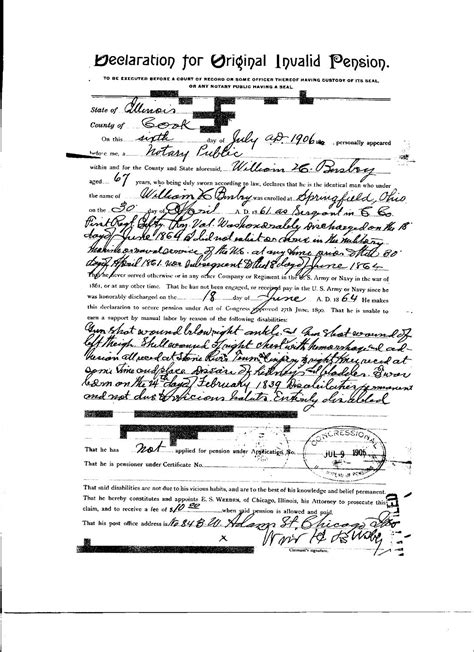 Declaration for Original Invalid Pension.
TO BE EXECUTED BEFORE A COURT OF RECORD OR SOME OFFICER THEREOF HAVING CUSTODY OF ITS SEAL,
OR ANY NOTARY PUBLIC HAVING A SEAL
State of Illinois
County of Cook
On this sixth day of July A.D. 1906, personally appeared
before me, a Notary Public
within and for the County and State aforesaid, William H. Busby
aged 67 years, who being duly sworn according to law, declares that he is the identical man who under
the name of William H. Busby was enrolled at Springfield, Ohio
on the 30 day of April A. D. 61 as Sergeant in E Co
First Reg Vol. Was honorably discharged on the 18
day of June 1864 & did not enlist or serve in the military
service of the U.S. at any time prior to 30
day of April 1861 nor subsequent to the 18 day of June 1864
That he never served otherwise or in any other Company or Regiment in the U. S. Army or Navy in the war of
1861, or at any other time. That he has not been engaged, or received pay in the U. S. Army or Navy since he
was honorably discharged on the 18 day of June A. D. 1864 He makes
this declaration to secure pension under Act of Congress approved 27th June, 1890. To is unable to
earn a support by manual labor by reason of the following disabilities:
Gun shot wound below right ankle Gun shot wound of
left thigh. Shell wound of right chest with hemorrhage and
all recd at Stone River Tenn of right recd at
same time and place Disease of kidneys & bladder. I was
born on the 4th day of February 1839 Disabilities permanent
and not due to vicious habits. Entirely disabled
That he has not applied for pension under Application No.
That he is pensioner under Certificate No.
CONGRESSIONAL
JUL 9 1906
That said disabilities are not due to his vicious habits, and are to the best of his knowledge and belief permanent.
That he hereby constitutes and appoints E. S. WEEDEN, of Chicago, Illinois, his Attorney to prosecute this
claim, and to receive a fee of $10.00 when said pension is allowed and paid.
That his post office address is No 848 W. Adams St. Chicago Ills
x Wm H Busby
Claimant's signature.